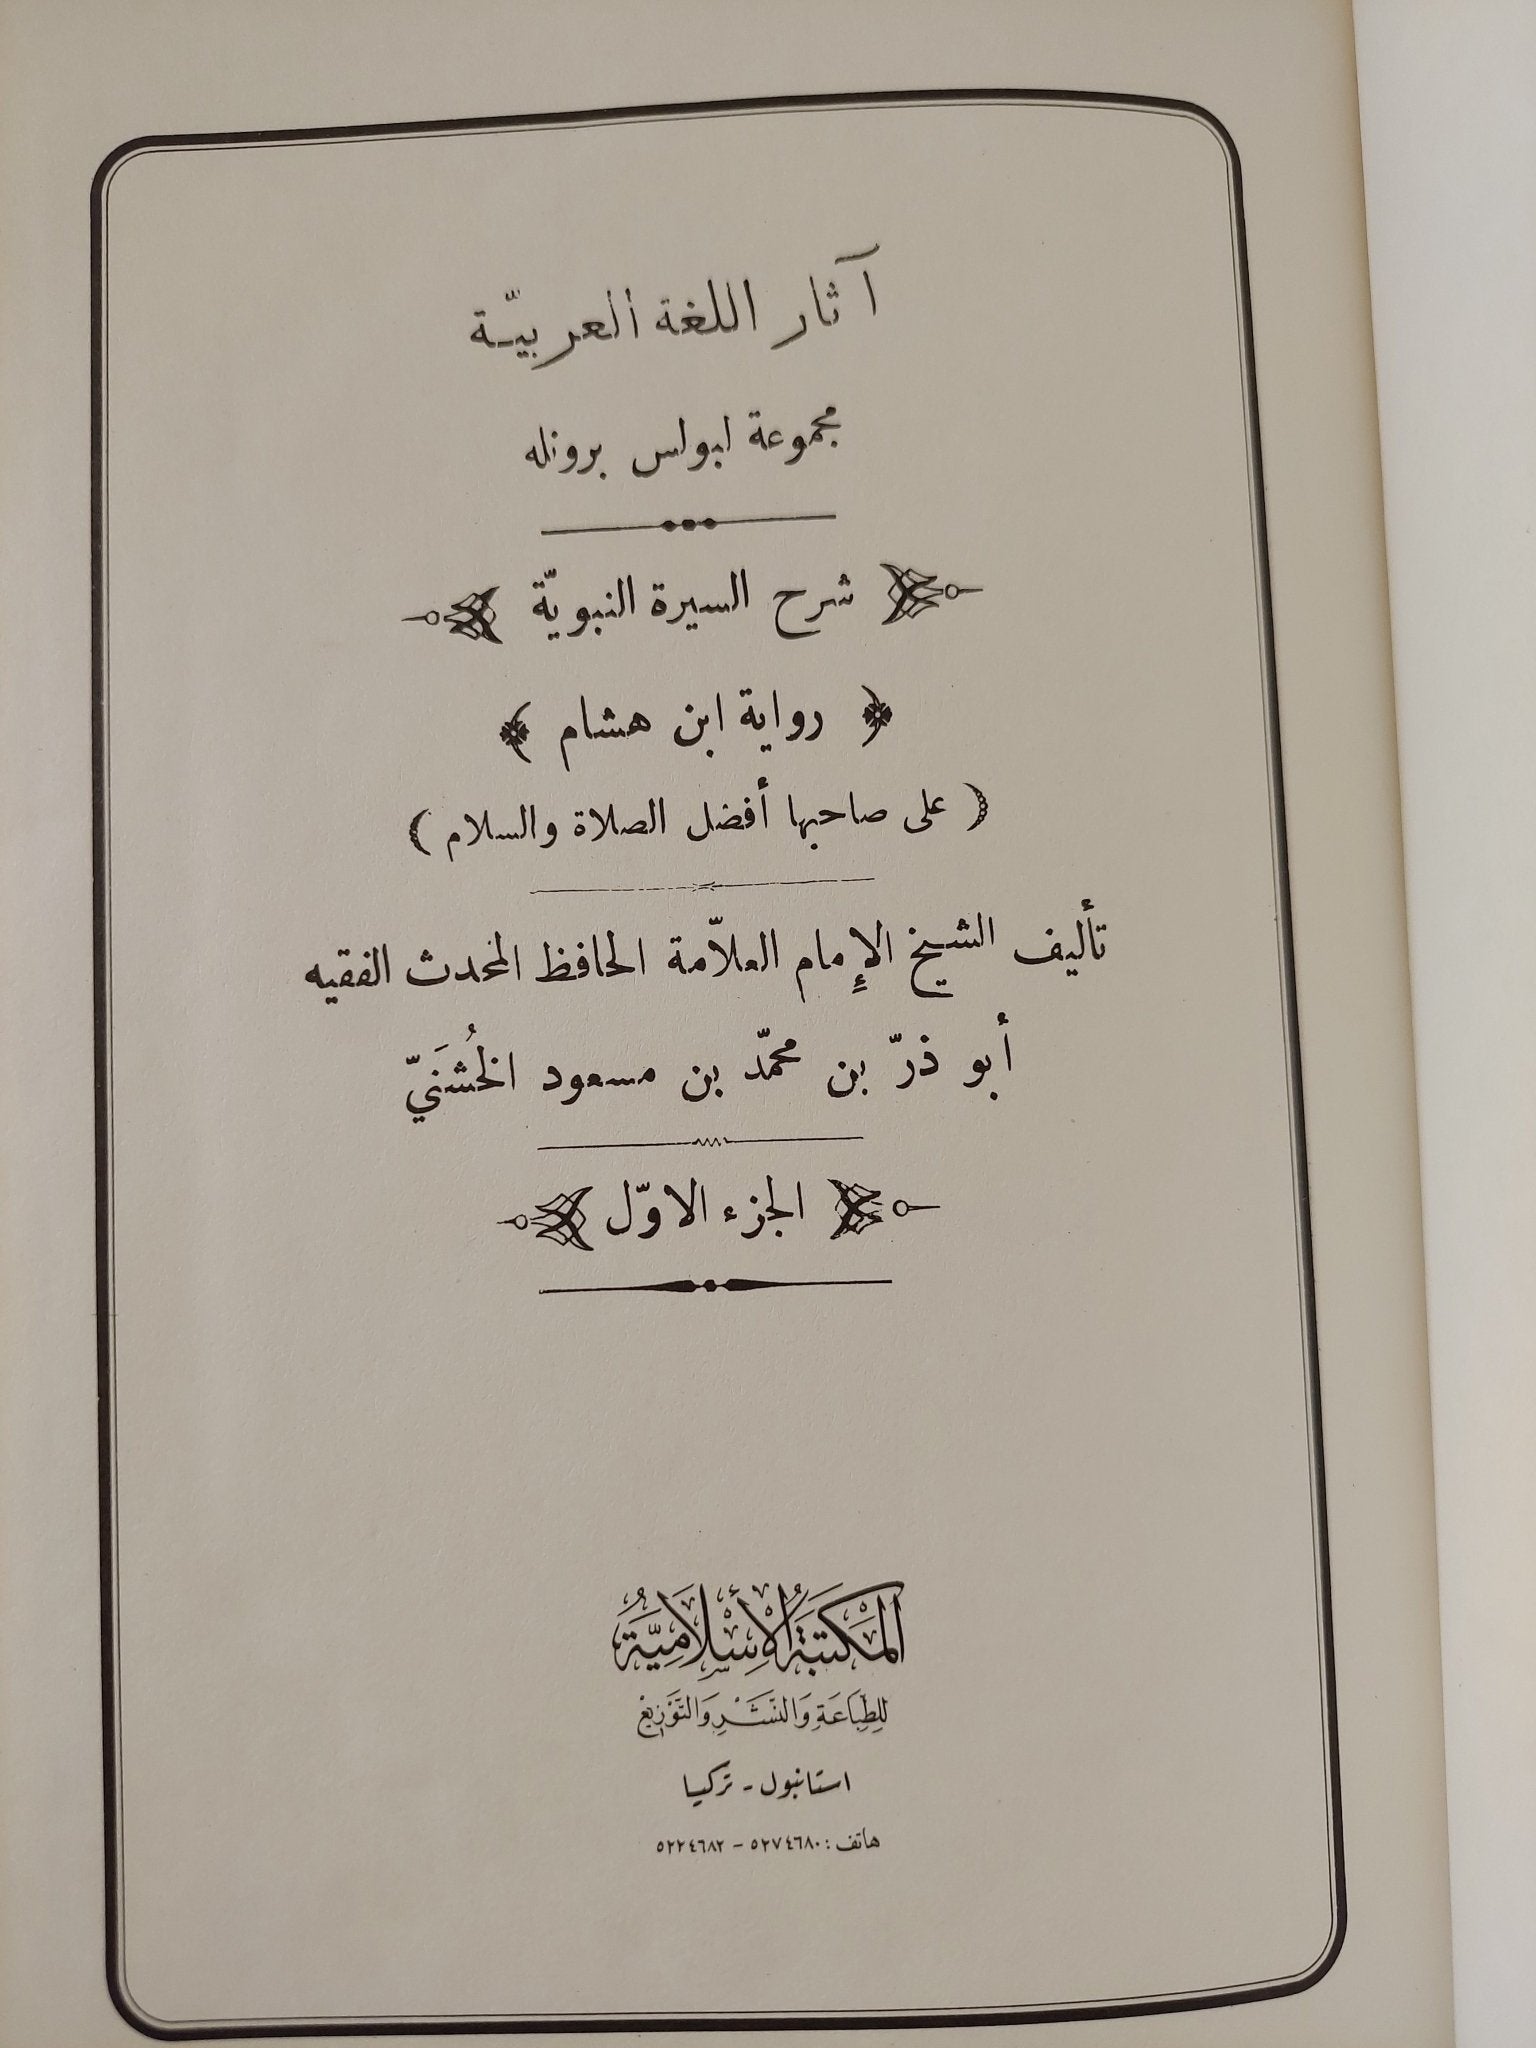 آثار اللغة العربيّة
مجموعة لبولس برونله
شرح السيرة النبويّة
رواية ابن هشام
( على صاحبها أفضل الصلاة والسلام )
تأليف الشيخ الإمام العلاّمة الحافظ المحدث الفقيه
أبو ذرّ بن محمّد بن مسعود الخُشَنَيّ
الجزء الاوّل
المَكتَبَةُ الإِسْلَامِيَّةُ
لِلطِّبَاعَةِ وَالنَّشْرِ وَالتَّوْزِيع
استانبول - تركيا
هاتف : ٥٢٧٤٦٨٠ - ٥٢٢٤٦٨٢